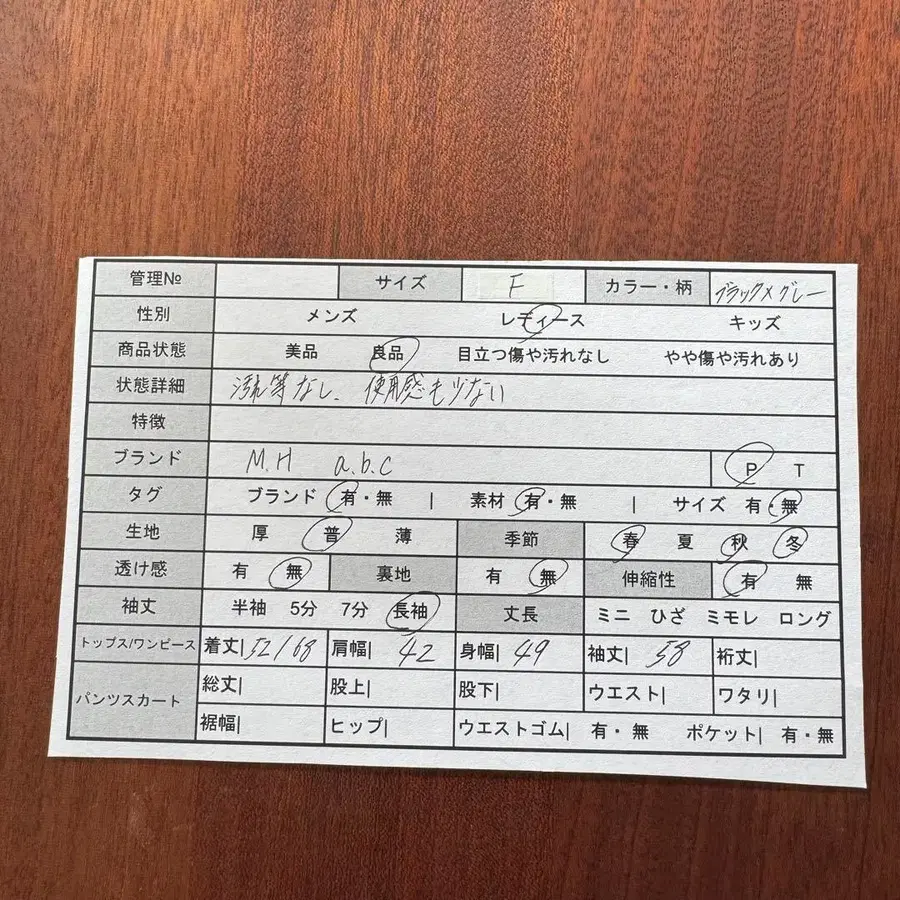 管理№ サイズ F カラー・柄 ブラック×グレー
性別 メンズ レディース キッズ
商品状態 美品 良品 目立つ傷や汚れなし やや傷や汚れあり
状態詳細 汚れ等なし、使用感も少ない
特徴
ブランド M.H a.b.c P T
タグ ブランド 有・無 | 素材 有・無 | サイズ 有・無
生地 厚 普 薄 季節 春 夏 秋 冬
透け感 有 無 裏地 有 無 伸縮性 有 無
袖丈 半袖 5分 7分 長袖 丈長 ミニ ひざ ミモレ ロング
トップス/ワンピース 着丈| 52/68 肩幅| 42 身幅| 49 袖丈| 58 裄丈|
パンツスカート 総丈| 股上| 股下| ウエスト| ワタリ|
裾幅| ヒップ| ウエストゴム| 有・無 ポケット| 有・無